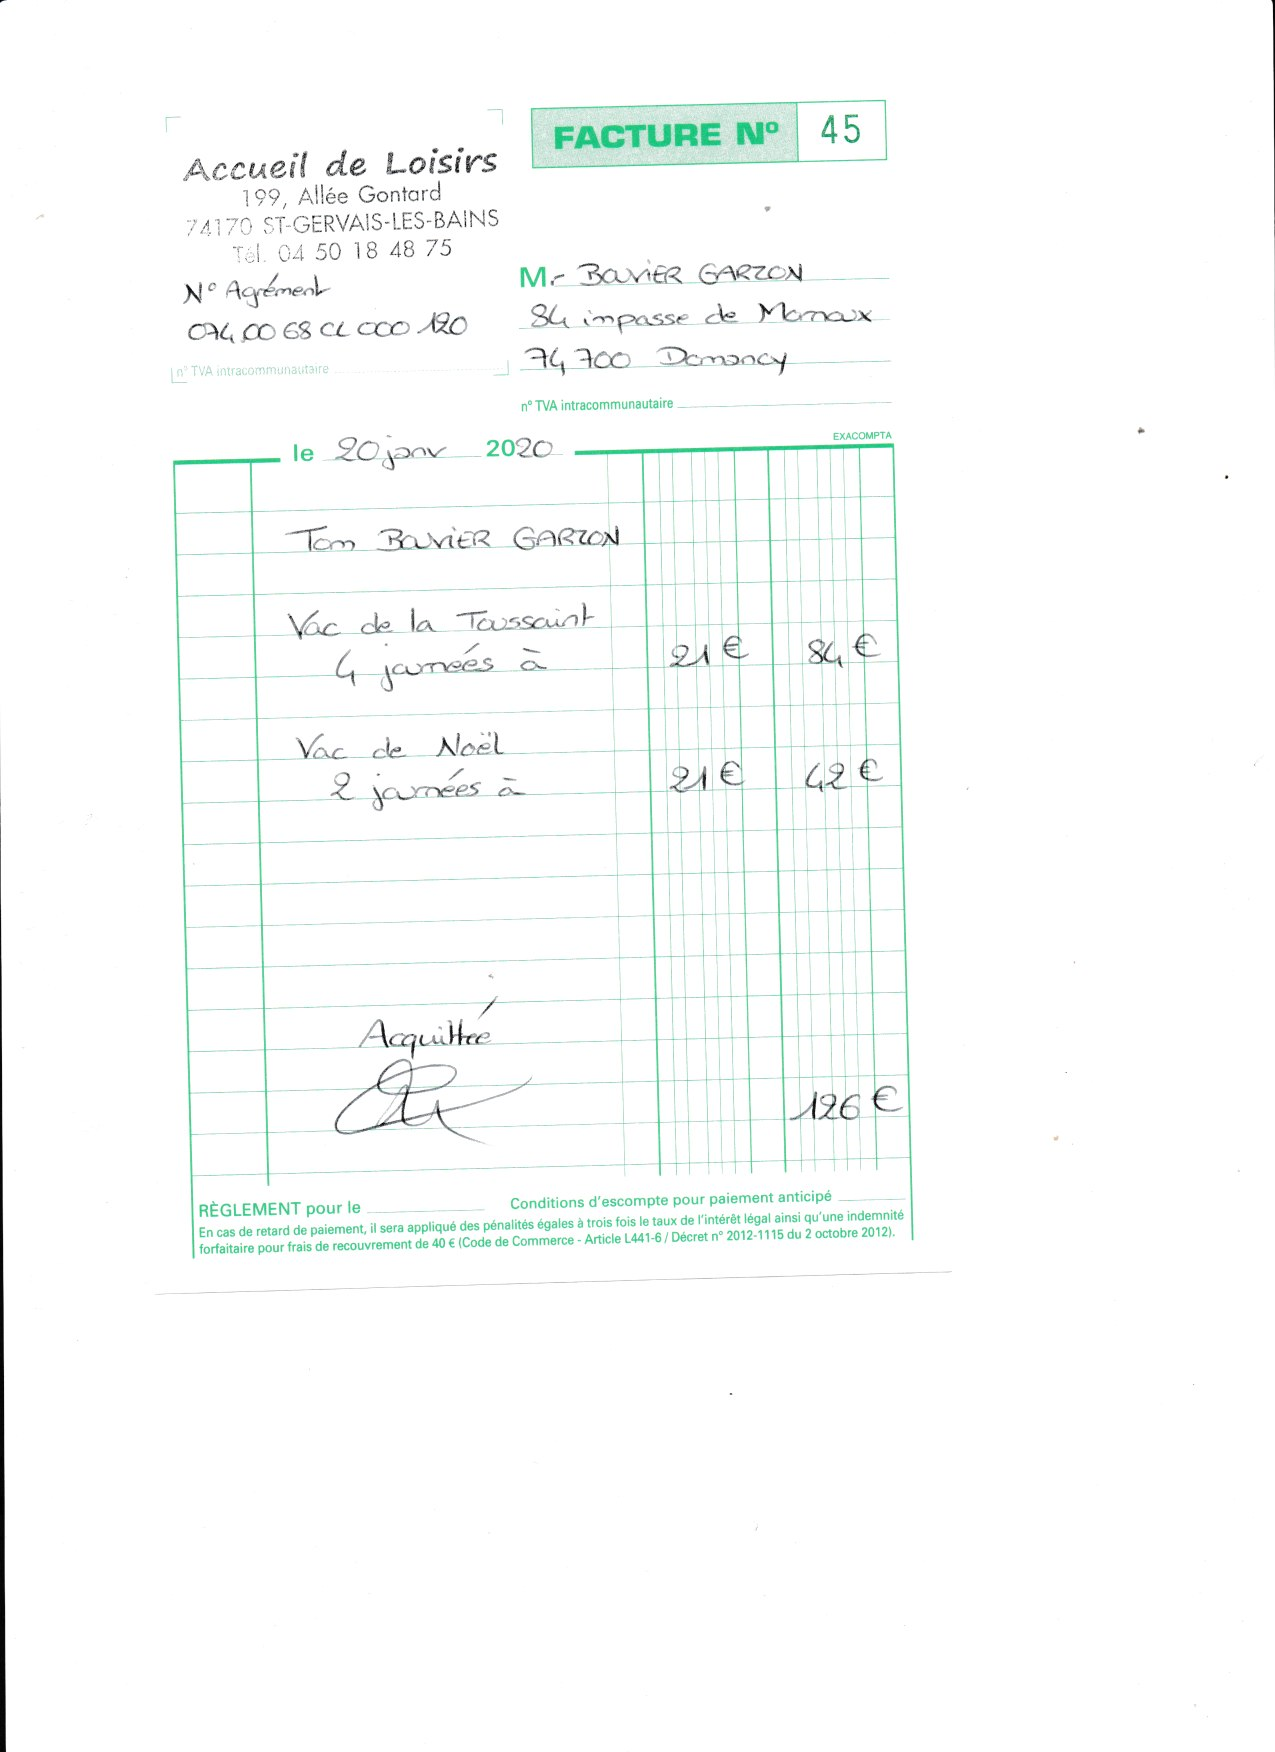 FACTURE Nº 45
Accueil de Loisirs
199, Allée Gontard
74170 ST-GERVAIS-LES-BAINS
Tél. 04 50 18 48 75
N° Agrément
074 00 68 CL 000 120
n° TVA intracommunautaire
M.- BOUVIER GARZON
84 impasse de Mornoux
74 700 Domancy
n° TVA intracommunautaire
EXACOMPTA
le 20 janv 2020
Tom BOUVIER GARZON
Vac de la Toussaint
4 journées à 21 € 84 €
Vac de Noël
2 journées à 21 € 42 €
Acquittée
126 €
RÈGLEMENT pour le Conditions d'escompte pour paiement anticipé
En cas de retard de paiement, il sera appliqué des pénalités égales à trois fois le taux de l'intérêt légal ainsi qu'une indemnité
forfaitaire pour frais de recouvrement de 40 € (Code de Commerce - Article L441-6 / Décret n° 2012-1115 du 2 octobre 2012).